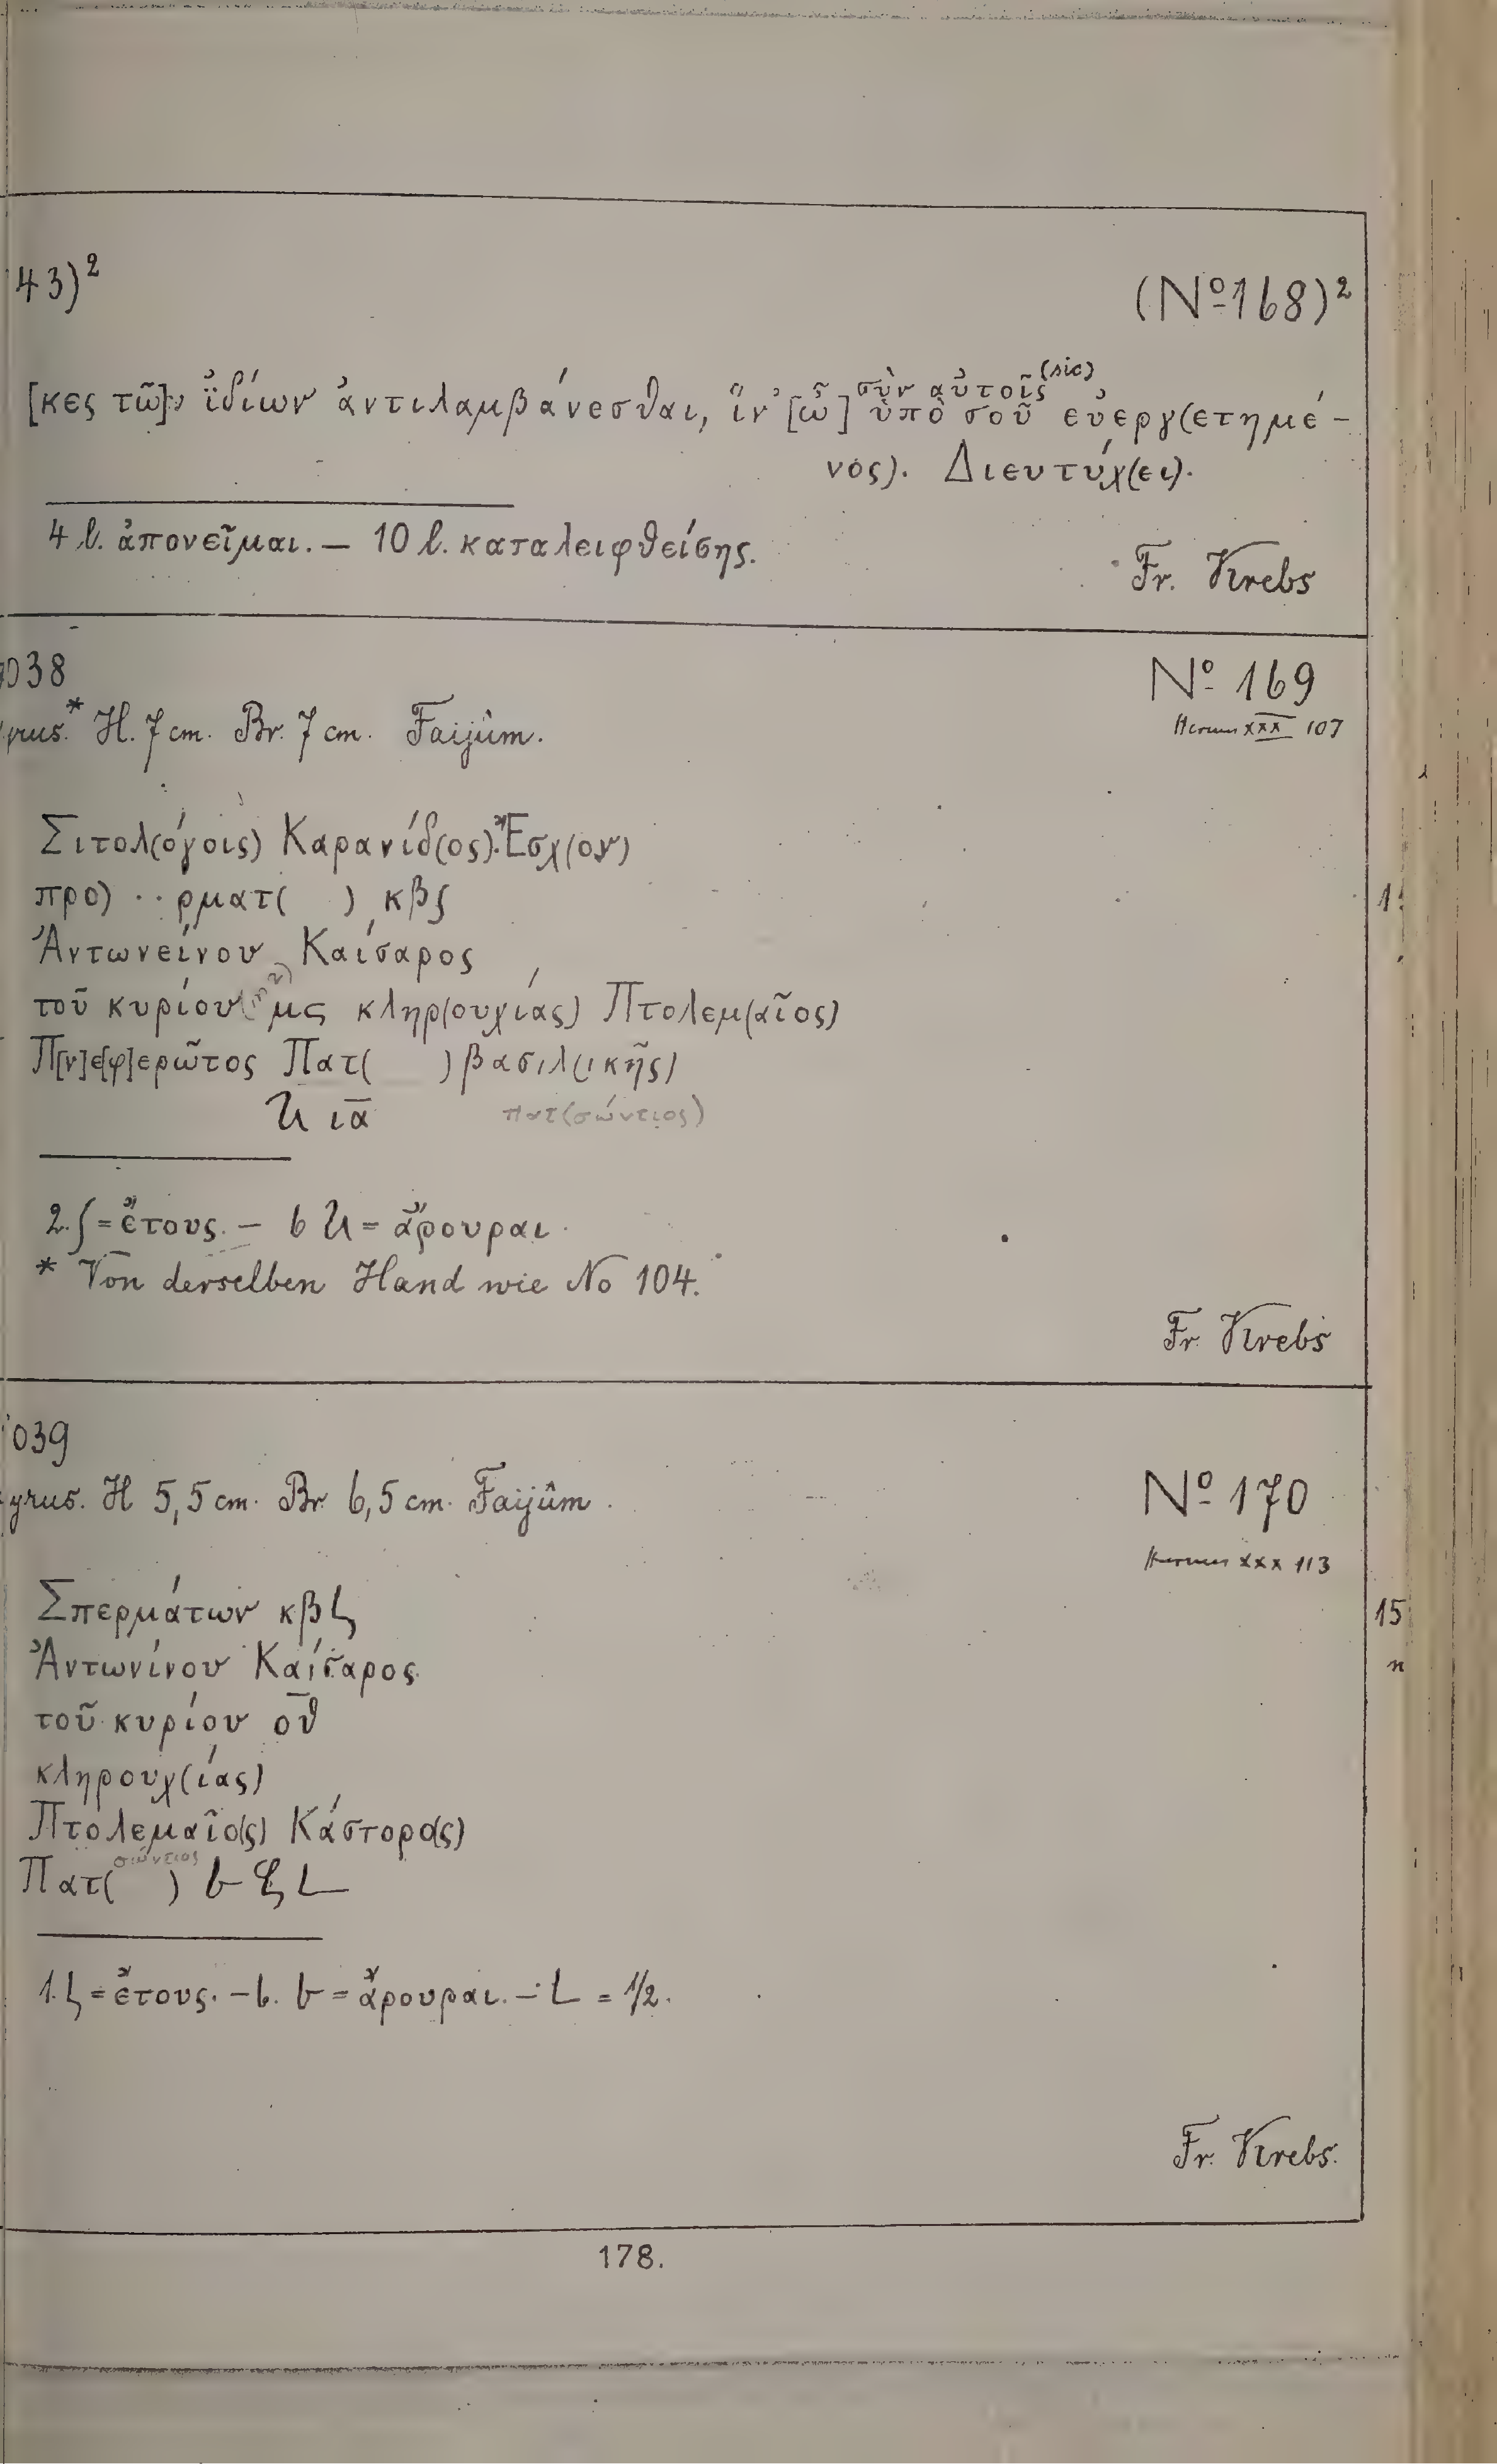 43)²
(Nº 168)²
[κες τῶ]ν ἰδίων ἀντιλαμβάνεσθαι, ἵν' [ὦ] σὺν αὐτοῖς (sic) ὑπὸ σοῦ εὐεργ(ετημέ-
νος). Διευτύχ(ει).
4 l. ἀπονεῖμαι. — 10 l. καταλειφθείσης.
Fr. Krebs
038
Nº 169
yrus.* H. 7 cm. Br. 7 cm. Faijûm.
Hermes XXX 107
Σιτολ(όγοις) Καρανίδ(ος). Ἔσχ(ον)
προ) ·· ρματ( ) κβ ʃ
Ἀντωνείνου Καίσαρος
τοῦ κυρίου μς κληρ(ουχίας) Πτολεμ(αῖος)
Π[ν]ε[φ]ερῶτος Πατ( ) βασιλ(ικῆς)
ια
πατ(σώντιος)
2. ʃ = ἔτους. — 6 = ἄρουραι.
* Von derselben Hand wie No 104.
Fr. Krebs
039
yrus. H 5,5 cm. Br. 6,5 cm. Faijûm.
Nº 170
Hermes XXX 113
Σπερμάτων κβ
Ἀντωνίνου Καίσαρος
τοῦ κυρίου οθ
κληρουχ(ίας)
Πτολεμαῖο(ς) Κάστορο(ς)
Πατ(σώντιος)
1. = ἔτους. — 6. = ἄρουραι. — L = 1/2.
Fr. Krebs.
178.
15
n